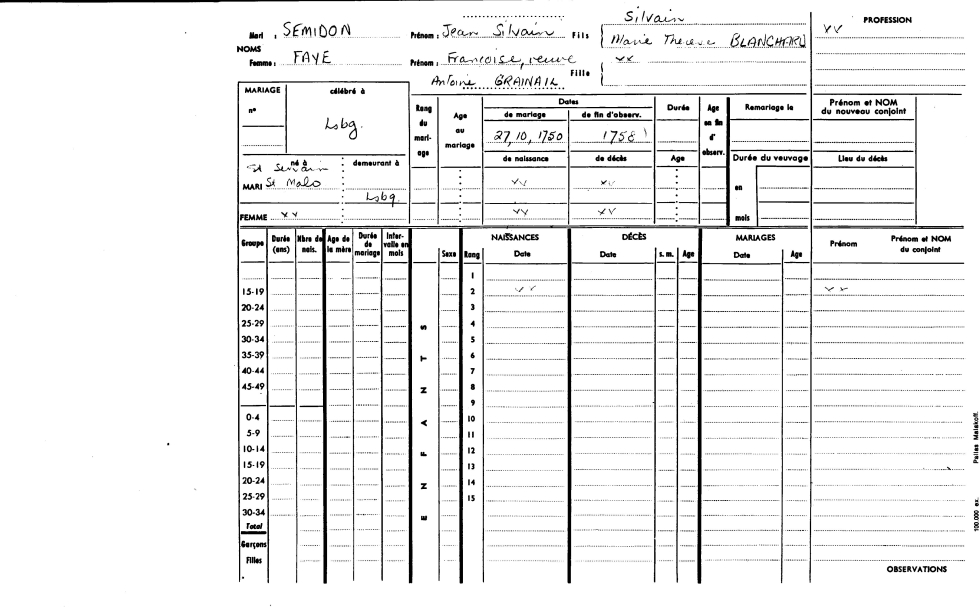 Silvain
PROFESSION
Mari : SEMIDON Prénom : Jean Silvain Fils { Marie Therese BLANCHARD
NOMS
Femme : FAYE Prénom : Francoise, veuve
Antoine GRAINAIL Fille
MARIAGE célébré à
n° Lsbg.
Rang du mariage
Age au mariage
Dates
de mariage de fin d'observ.
27, 10, 1750 1758
de naissance de décès
Durée
Age
Age en fin d' observ.
Remariage le
Durée du veuvage
en
mois
Prénom et NOM du nouveau conjoint
Lieu du décès
né à demeurant à
St Servain
MARI St Malo Lsbg.
FEMME
Groupe Durée (ans) Nbre de nais. Age de la mère Durée de mariage Intervalle en mois
ENFANTS
Sexe Rang
NAISSANCES DÉCÈS MARIAGES
Date Date s. m. Age Date Age
Prénom Prénom et NOM du conjoint
1
15-19 2
20-24 3
25-29 4
30-34 5
35-39 6
40-44 7
45-49 8
9
0-4 10
5-9 11
10-14 12
15-19 13
20-24 14
25-29 15
30-34
Total
Garçons
Filles
OBSERVATIONS
100.000 ex. Pallas Malakoff.